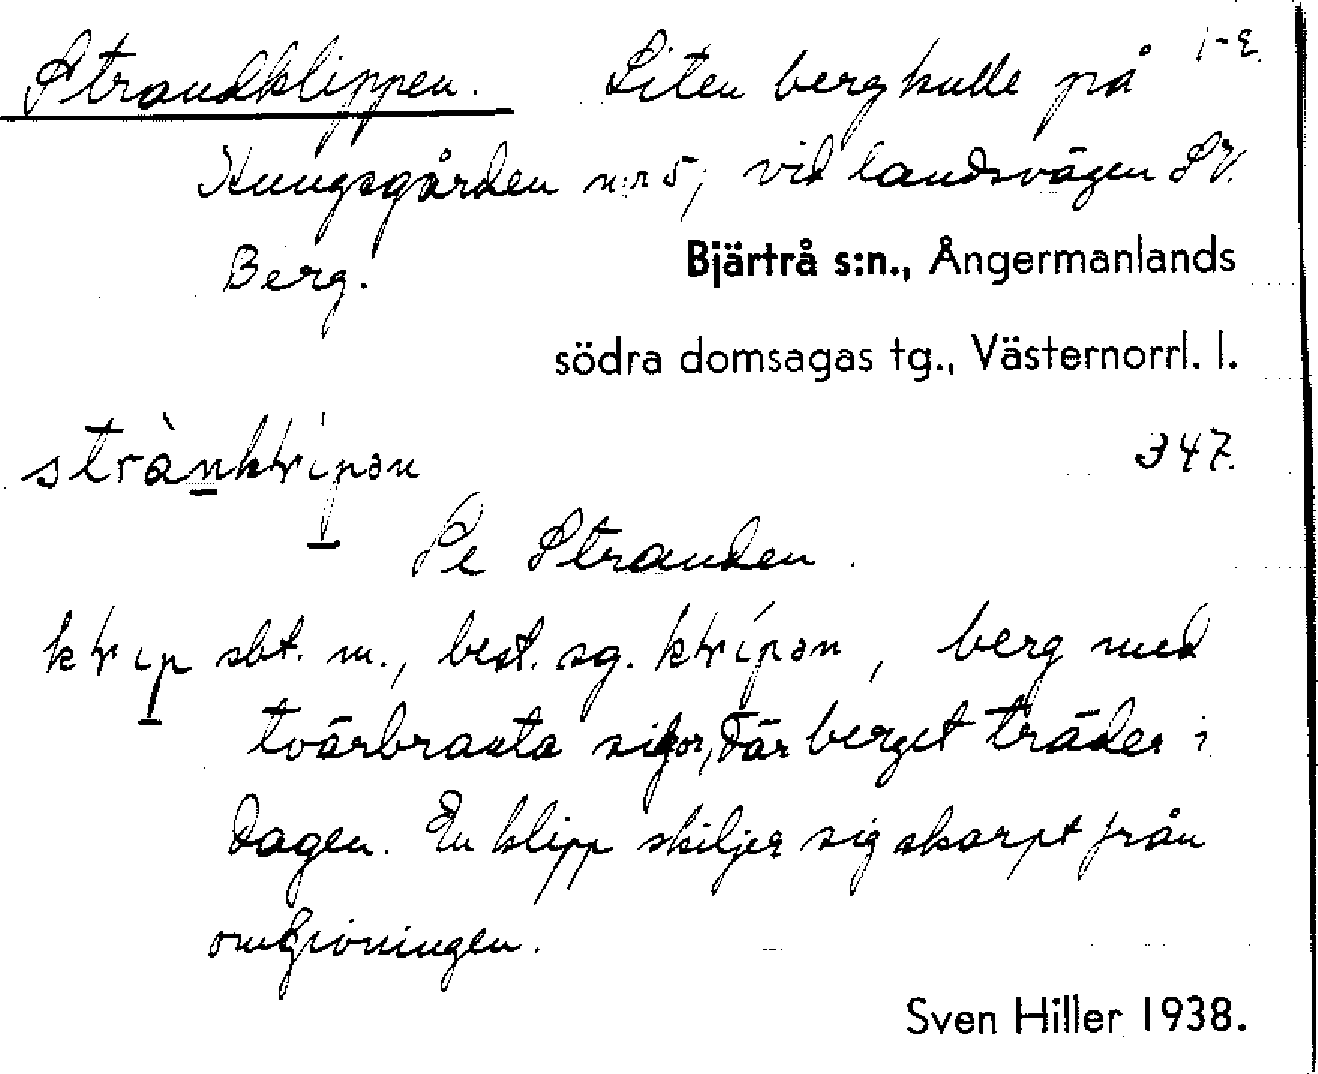 Strandklippen. Liten bergkulle på 1-2.
Kungsgården n:r 5, vid landsvägen SV.
Berg. Bjärtrå s:n., Ångermanlands
södra domsagas tg., Västernorrl. l.
347.
Se Stranden.
sbt. m., best. sg. , berg med
tvärbranta sidor, där berget träder i
dagen. En klipp skiljer sig skarpt från
omgivningen.
Sven Hiller 1938.